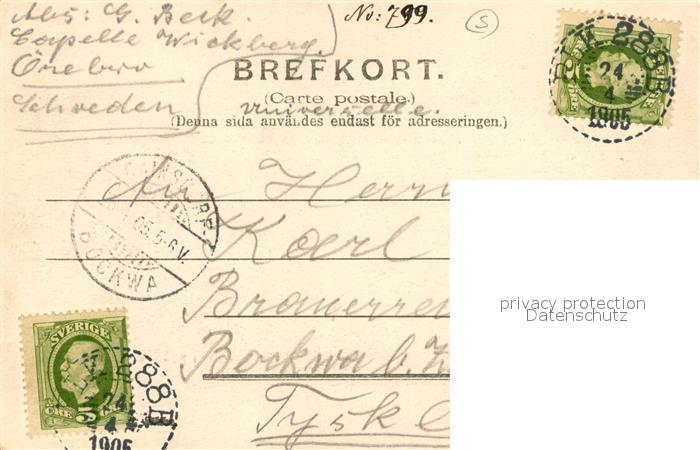 Abs: G. Beck.
Capelle Wickberg.
Örebro
Schweden
No: 799.
S
BREFKORT.
(Carte postale.)
universelle.
(Denna sida användes endast för adresseringen.)
PKXP 288 B
24
4
1905
An Herrn
Karl
Brauerei
Bockwa b. Z
Tysk
05.5-6V.
BOCKWA
privacy protection
Datenschutz
SVERIGE
5 ÖRE 5
288 B
24
4
1905